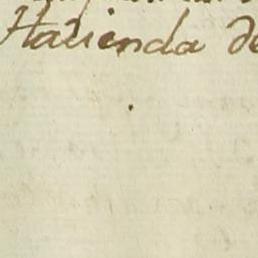 Hacienda de